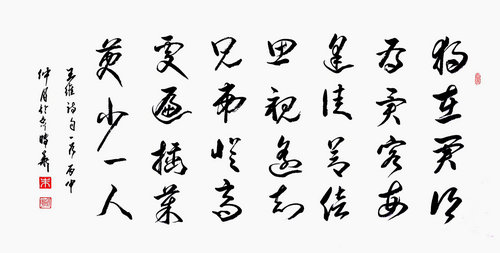 獨在異鄉
為異客每
逢佳節倍
思親遙知
兄弟登高
處遍插茱
萸少一人
王維詩句一首丙申
仲月於京